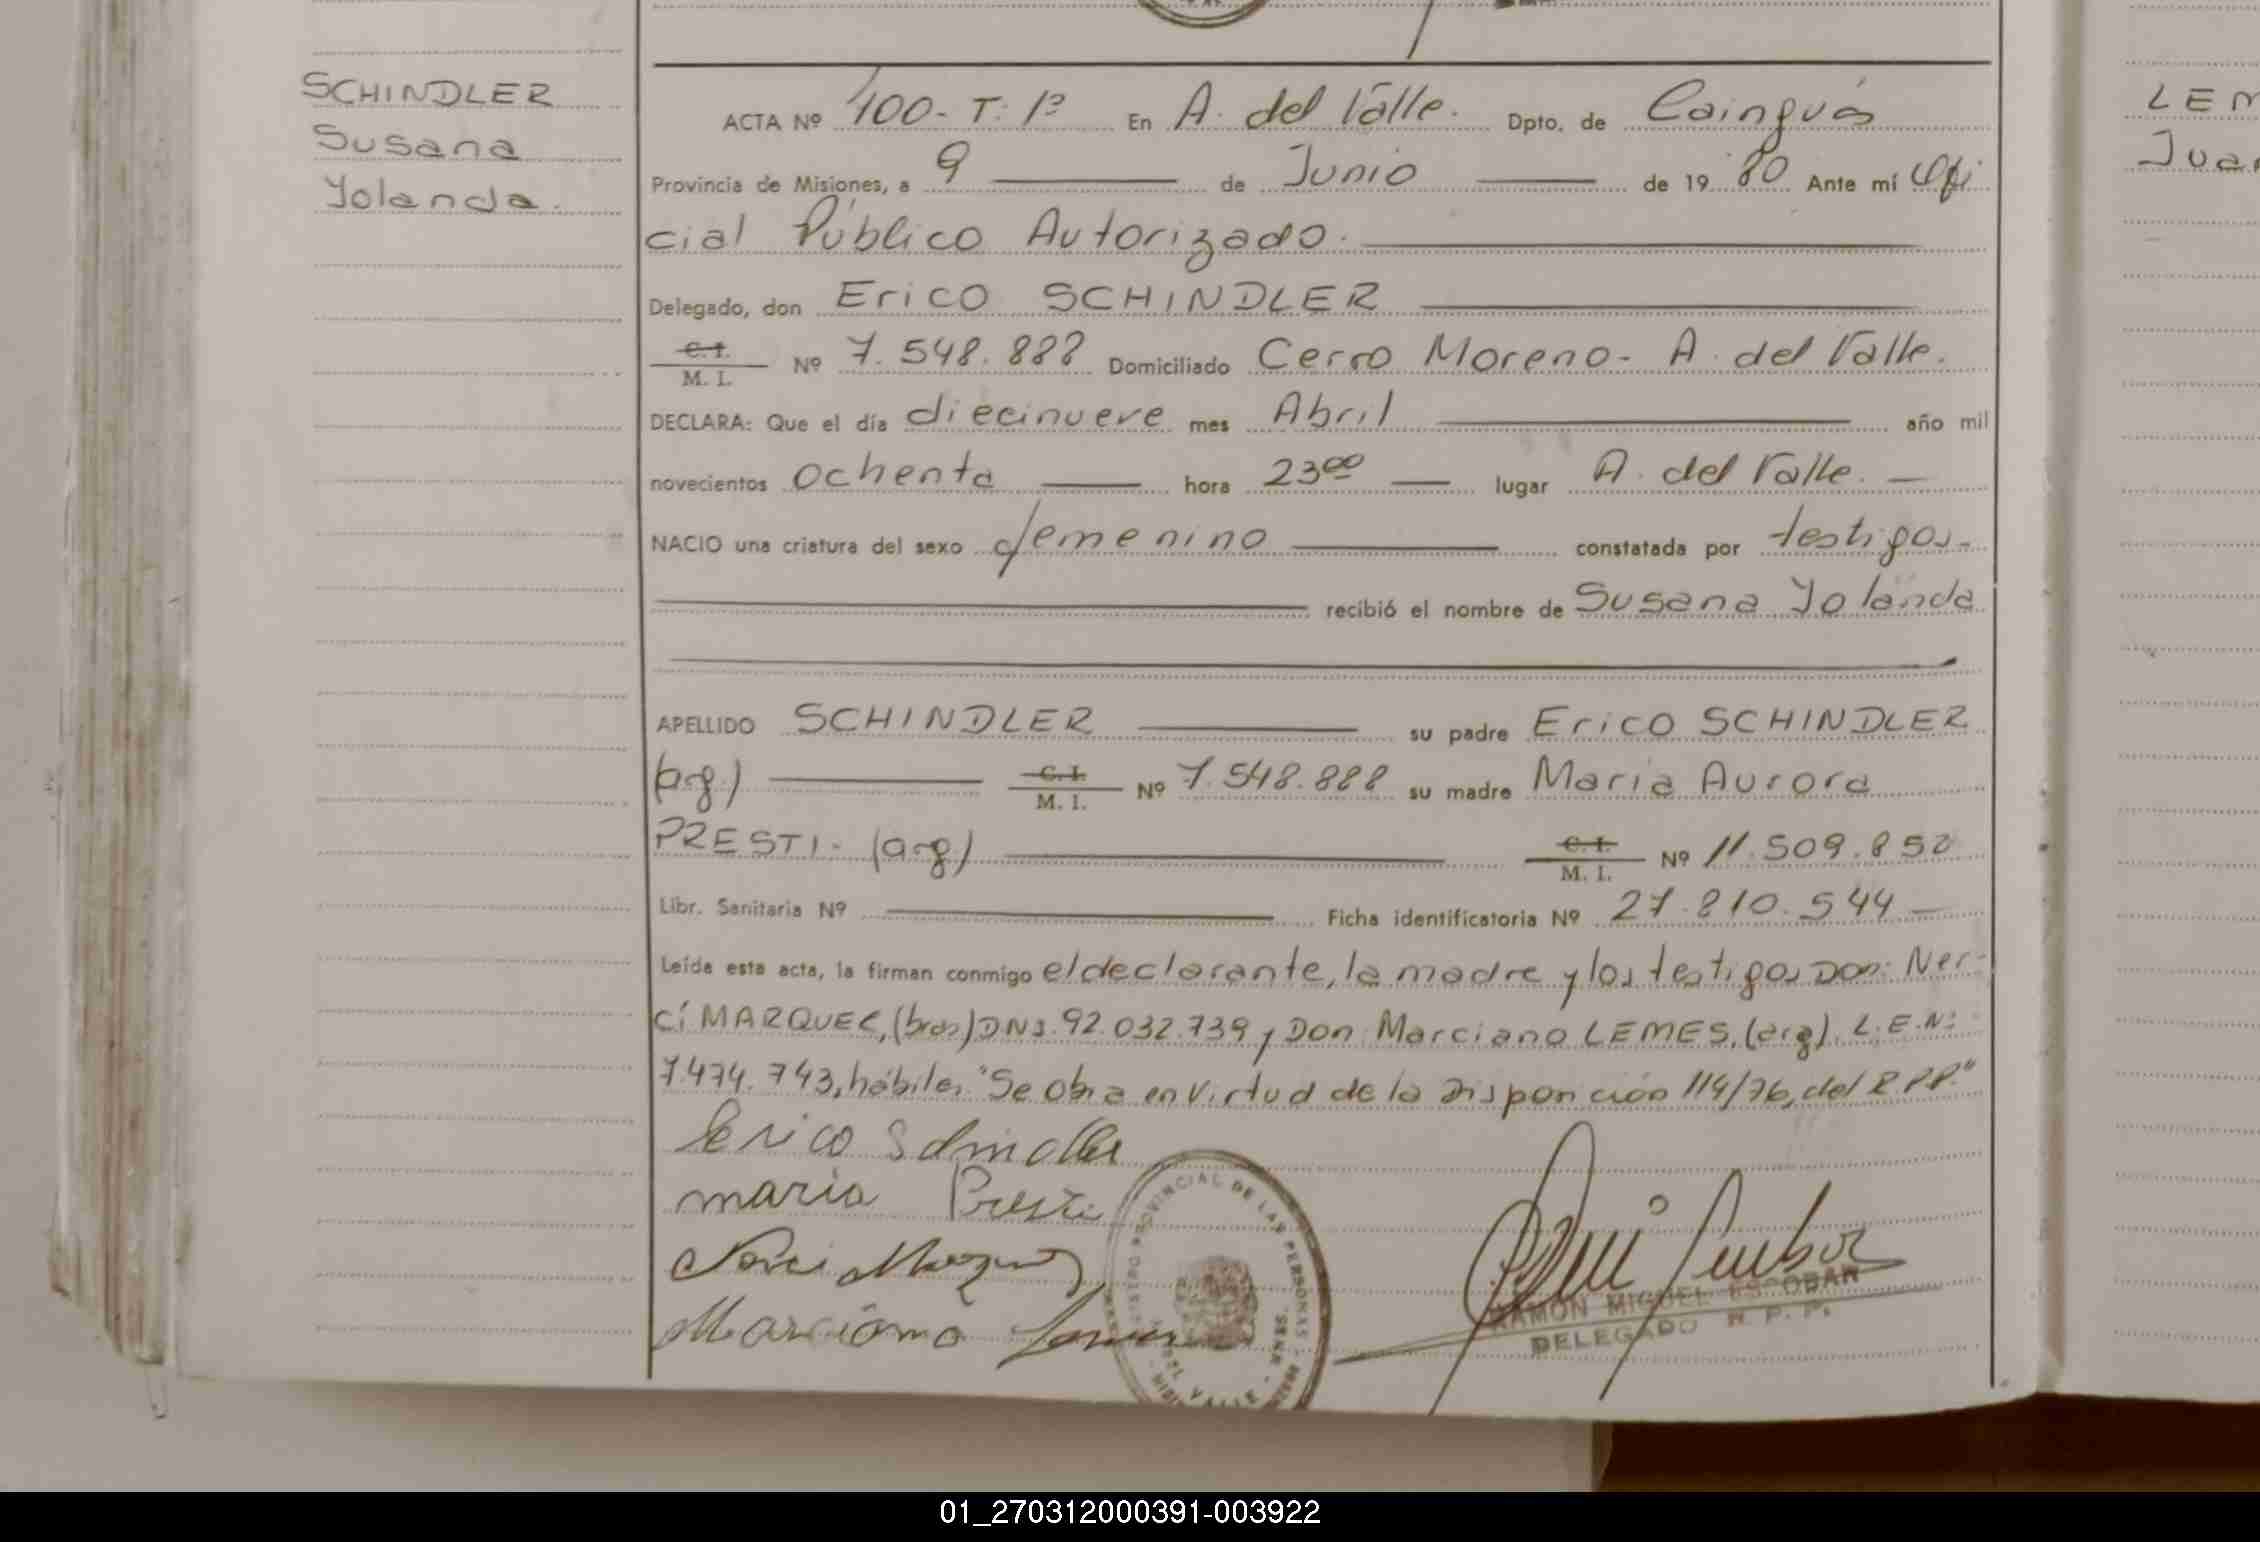 SCHINDLER
Susana
Yolanda.
ACTA Nº 100- T: 1º En A. del Valle. Dpto. de Cainguás
Provincia de Misiones, a 9 de Junio de 1980 Ante mí Ofi
cial Público Autorizado.
Delegado, don Erico SCHINDLER
C. I.
M. I. Nº 7.548.888 Domiciliado Cerro Moreno- A. del Valle.
DECLARA: Que el día diecinueve mes Abril año mil
novecientos ochenta hora 23⁰⁰ lugar A. del Valle.
NACIO una criatura del sexo femenino constatada por testigos-
recibió el nombre de Susana Yolanda
APELLIDO SCHINDLER su padre Erico SCHINDLER
(arg.) C. I.
M. I. Nº 7.548.888 su madre María Aurora
PRESTI- (arg) C. I.
M. I. Nº 11.509.852
Libr. Sanitaria Nº Ficha identificatoria Nº 27.810.544
Leída esta acta, la firman conmigo el declarante, la madre y los testigos Don: Ner-
cí MARQUEZ, (bras) DNI. 92.032.739 y Don Marciano LEMES, (arg). L.E.Nº
7.474.743, hábiles "Se obra en virtud de la Disposición 114/76, del R.P.P."
Erico Schindler
maria Presti
Nerci Marquez
Marciano Lemes
REGISTRO PROVINCIAL DE LAS PERSONAS
DEL VALLE
RAMON MIGUEL ESCOBAR
DELEGADO R. P. P.
LEM
Juan
01_270312000391-003922